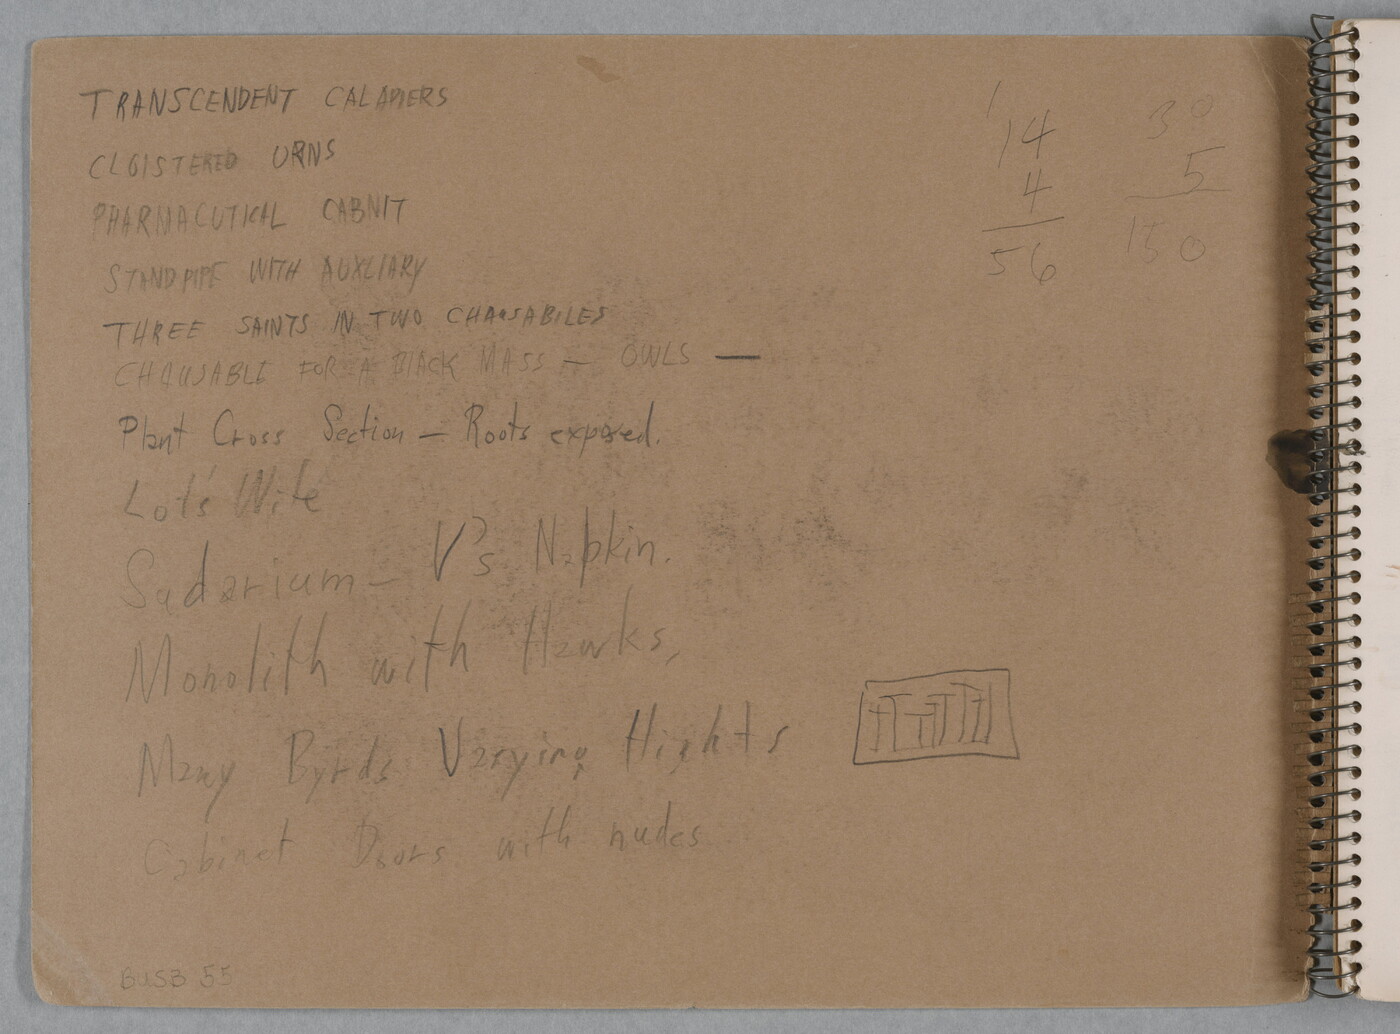 TRANSCENDENT CALADIERS
CLOISTERED URNS
PHARMACUTICAL CABNIT
STANDPIPE WITH AUXLIARY
THREE SAINTS IN TWO CHAUSABILES
CHAUSABLE FOR A BLACK MASS — OWLS —
Plant Cross Section — Roots exposed.
Lot's Wife
Sudarium — V's Napkin.
Monolith with Hawks,
Many Byrds Varying Hights
Cabinet Doors with nudes
1
14
4
56
30
5
150
BUSB 55